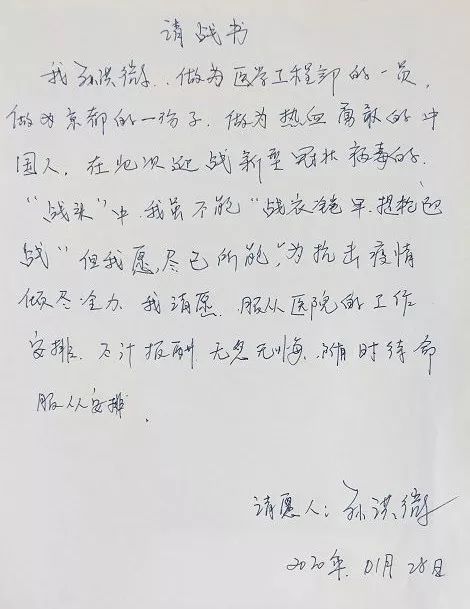 请战书
我孙洪微，做为医学工程部的一员，
做为京都的一份子，做为热血勇敢的中
国人，在此次迎战新型冠状病毒的
“战场”中，我虽不能“战衣
战”但我愿，尽己所能，为抗击疫情
倾尽全力，我请愿，服从医院的工作
安排，不计报酬，无怨无悔，随时待命
服从安排．
请愿人：孙洪微
2020年.01月28日